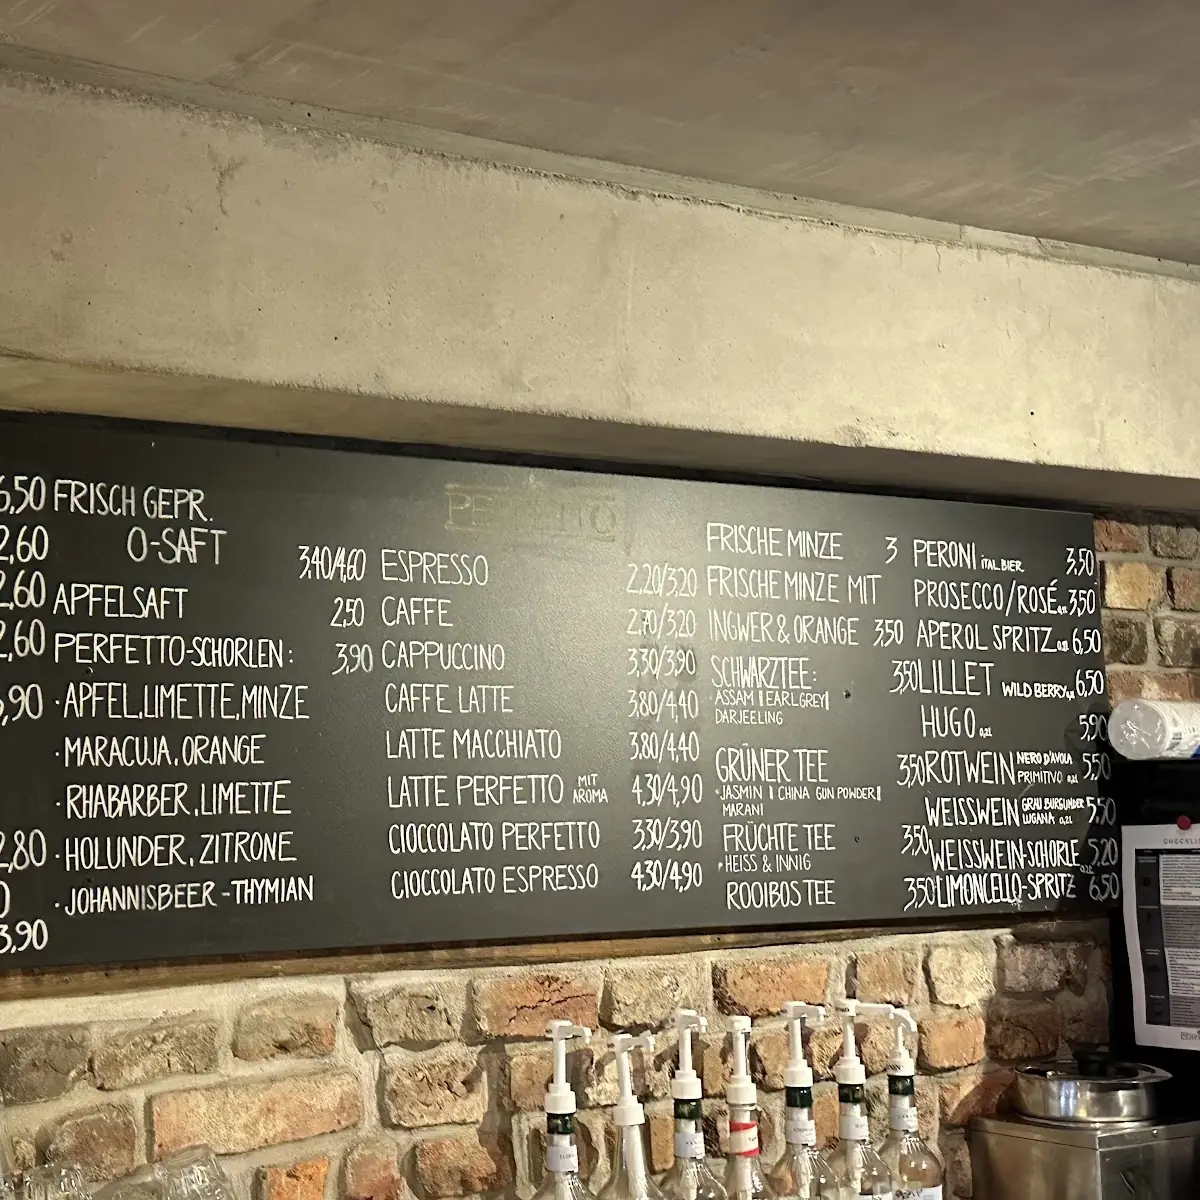 6,50
2,60
2,60
2,60
,90
2,80
0
3,90
FRISCH GEPR.
O-SAFT 3,40/4,60
APFELSAFT 2,50
PERFETTO-SCHORLEN: 3,90
·APFEL, LIMETTE, MINZE
·MARACUJA, ORANGE
·RHABARBER, LIMETTE
·HOLUNDER, ZITRONE
·JOHANNISBEER-THYMIAN
PERFETTO
ESPRESSO 2,20/3,20
CAFFE 2,70/3,20
CAPPUCCINO 3,30/3,90
CAFFE LATTE 3,80/4,40
LATTE MACCHIATO 3,80/4,40
LATTE PERFETTO MIT AROMA 4,30/4,90
CIOCCOLATO PERFETTO 3,30/3,90
CIOCCOLATO ESPRESSO 4,30/4,90
FRISCHE MINZE 3
FRISCHE MINZE MIT
INGWER & ORANGE 3,50
SCHWARZTEE: 3,50
·ASSAM | EARL GREY |
DARJEELING
GRÜNER TEE 3,50
·JASMIN | CHINA GUN POWDER |
MARANI
FRÜCHTE TEE 3,50
·HEISS & INNIG
ROOIBOS TEE 3,50
PERONI ITAL. BIER 3,50
PROSECCO/ROSÉ 3,50
APEROL SPRITZ 6,50
LILLET WILD BERRY 6,50
HUGO 0,2L 5,90
ROTWEIN NERO D'AVOLA PRIMITIVO 0,2L 5,50
WEISSWEIN GRAUBURGUNDER LUGANA 0,2L 5,50
WEISSWEIN-SCHORLE 5,20
LIMONCELLO-SPRITZ 6,50